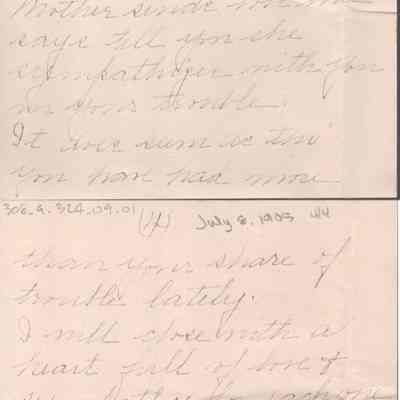 Mother sends love and
says tell you she
sympathizes with you
in your trouble.
It does seem as tho'
you have had more
306.9.524.09.01 (4) July 8, 1905 4/4
than your share of
trouble lately.
I will close with a
heart full of love &
sympathy for each one